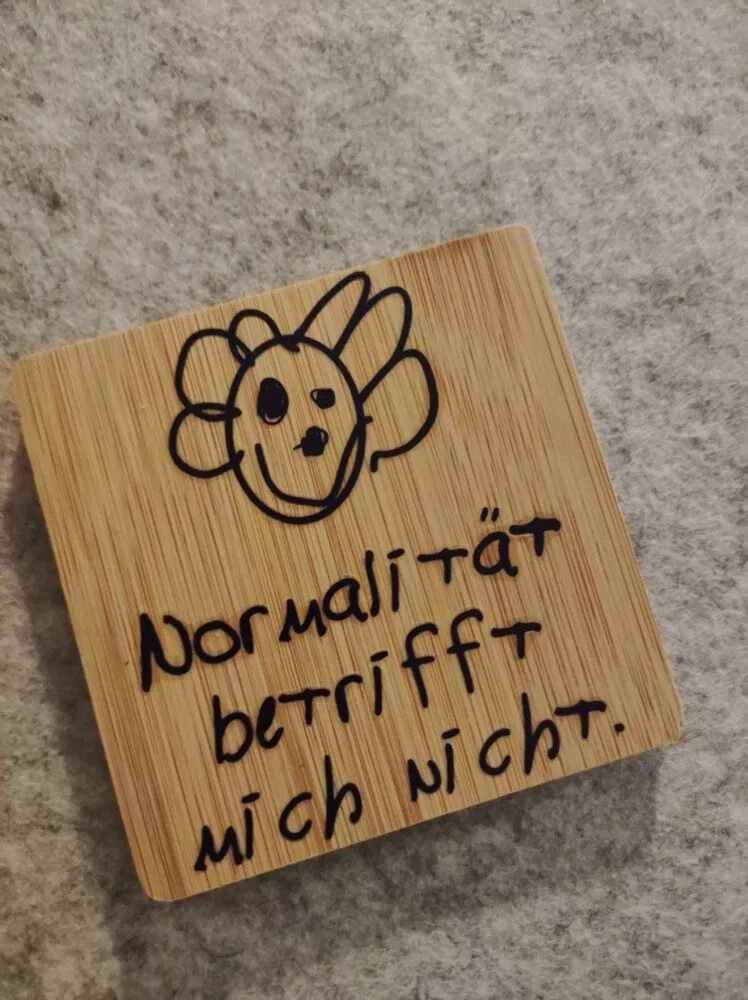 Normalität
betrifft
mich nicht.